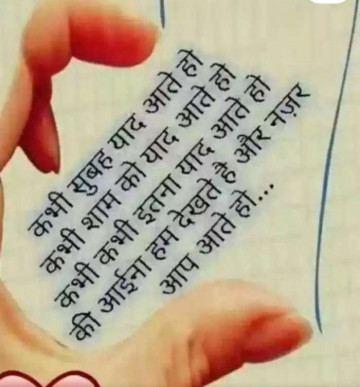 कभी सुबह याद आते हो
कभी शाम को याद आते हो
कभी कभी इतना याद आते हो
की आईना हम देखते है और नज़र
आप आते हो...